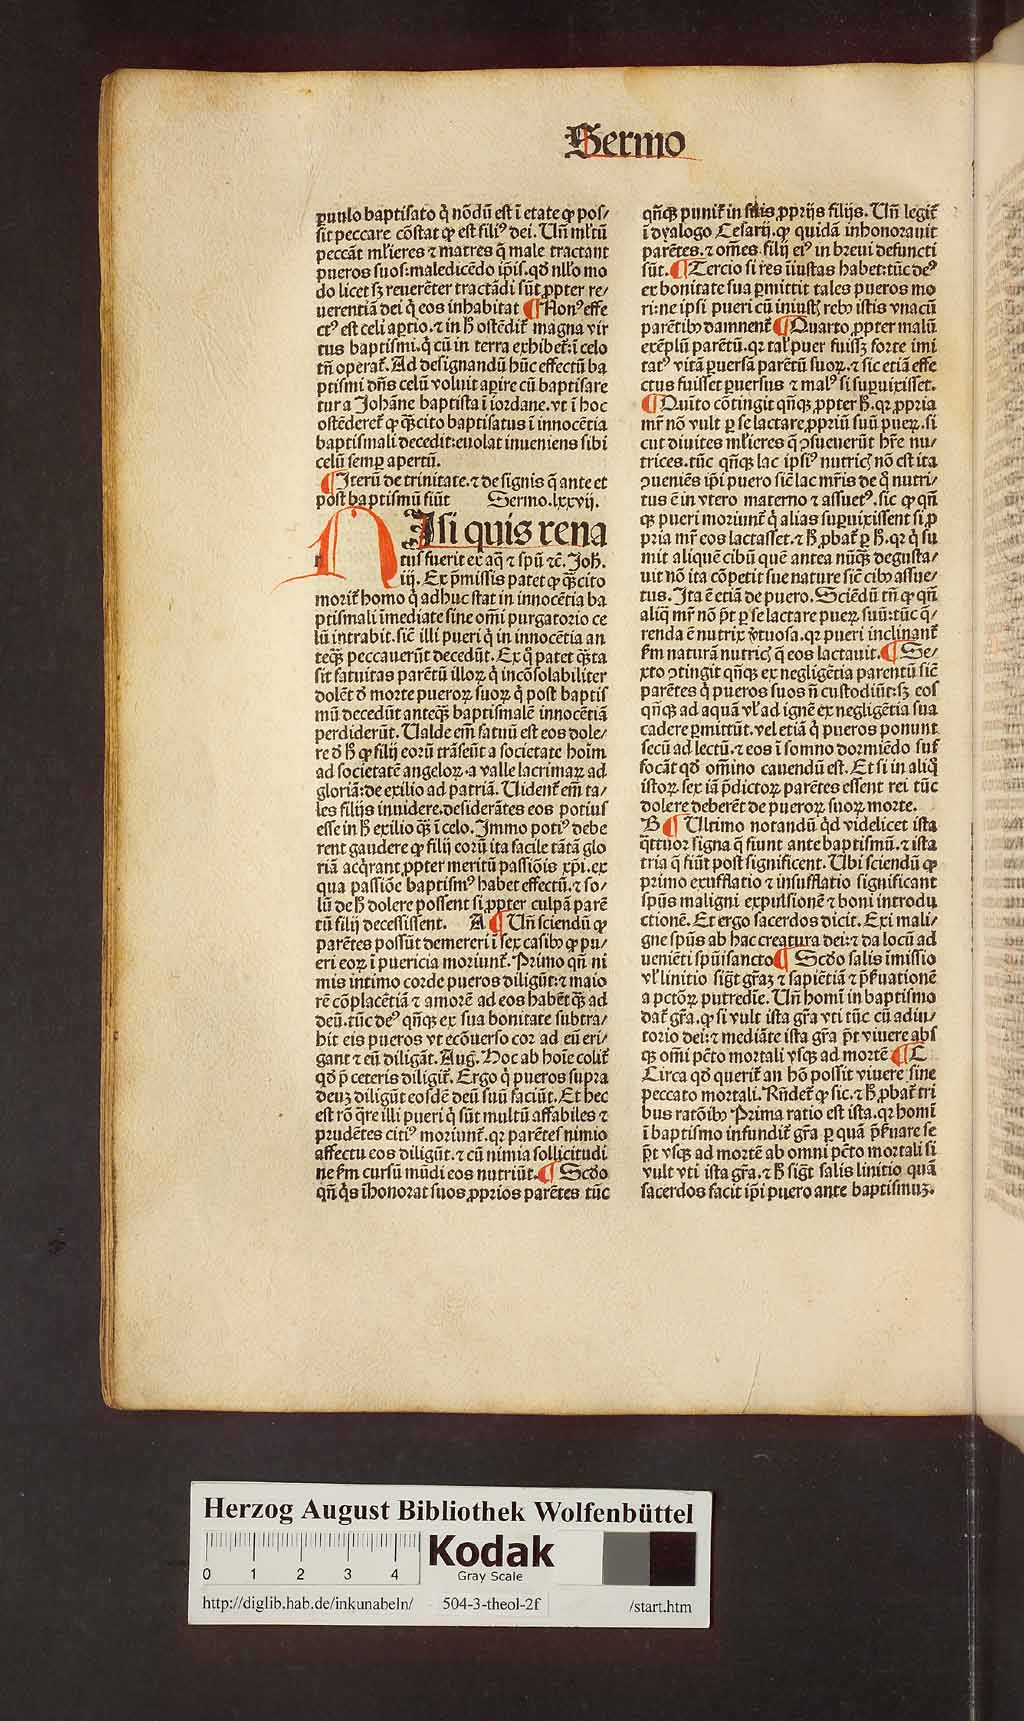 Sermo
paruulo baptisato q̇ nōdū est ī etate ꝙ pos/
sit peccare cōstat ꝙ est filiꝰ dei. Vn̄ ml̓tū
peccāt ml̓ieres ⁊ matres q̄ male tractant
pueros suos: maledicēdo ip̄is. qd̓ nll̓o mo
do licet sꝫ reuerēter tractādi sūt ꝓpter re/
uerentiā dei q̇ eos inhabitat ¶ Nonꝰ effe
ctꝰ est celi aꝑtio. ⁊ in hͦ ostēdit᷑ magna vir
tus baptismi. q̇ cū in terra exhibet᷑: ī celo
tn̄ operat᷑. Ad designandū hūc effectū ba
ptismi dn̄s celū voluit aꝑire cū baptisare
tur a Johāne baptista ī iordane. vt ī hoc
ostēderet᷑ ꝙ qꝫcito baptisatus ī innocētia
baptismali decedit: euolat inueniens sibi
celū semꝑ apertū.
¶ Iterū de trinitate. ⁊ de signis q̄ ante et
post baptismū fiūt Sermo. lxxvij.
NIsi quis rena
tus fuerit ex aq̄ ⁊ spū ⁊c̄. Joh.
iij. Ex p̄missis patet ꝙ qꝫcito
morit᷑ homo q̇ adhuc stat in innocētia ba
ptismali īmediate sine om̄i purgatorio ce
lū intrabit. sic̄ illi pueri q̇ in innocētia an
teqꝫ peccauerūt decedūt. Ex q̇ patet qꝫta
sit fatuitas parētū illoꝝ q̇ incōsolabiliter
dolēt d̓ morte pueroꝝ suoꝝ q̇ post baptis
mū decedūt anteqꝫ baptismalē innocētiā
perdiderūt. Ualde em̄ fatuū est eos dole/
re d̓ hͦ ꝙ filij eorū trāseūt a societate hoīm
ad societatē angeloꝝ. a valle lacrimaꝝ ad
gloriā: de exilio ad patriā. Uident᷑ em̄ ta/
les filijs inuidere. desiderātes eos potius
esse in hͦ exilio qꝫ ī celo. Immo potiꝰ debe
rent gaudere ꝙ filij eorū ita facile tātā glo
riā acq̇rant ꝓpter meritū passiōis xp̄i. ex
qua passiōe baptismꝰ habet effectū. ⁊ so/
lū de hͦ dolere possent si ꝓpter culpā parē
tū filij decessissent. A ¶ Un̄ sciendū ꝙ
parētes possūt demereri ī sex casibꝰ ꝙ pu/
eri eoꝝ ī puericia moriunt᷑. Primo qn̄ ni
mis intimo corde pueros diligūt: ⁊ maio
rē cōplacētiā ⁊ amorē ad eos habēt qꝫ ad
deū. tūc deꝰ qn̄qꝫ ex sua bonitate subtra/
hit eis pueros vt ecōuerso cor ad eū eri/
gant ⁊ eū diligāt. Aug. Hoc ab hoīe colit᷑
qd̓ p̄ ceteris diligit᷑. Ergo q̇ pueros supra
deuꝫ diligūt eosdē deū suū faciūt. Et hec
est rō q̄re illi pueri q̇ sūt multū affabiles ⁊
prudētes citiꝰ moriunt᷑. qꝛ parētes nimio
affectu eos diligūt. ⁊ cū nimia sollicitudi
ne ẜm cursū mūdi eos nutriūt. ¶ Scd̓o
qn̄ q̇s īhonorat suos ꝓprios parētes tūc
qn̄qꝫ punit᷑ in suis ꝓprijs filijs. Un̄ legit᷑
ī dyalogo Cesarij. ꝙ quidā inhonorauit
parētes. ⁊ om̄es filij eiꝰ in breui defuncti
sūt. ¶ Tercio si res īiustas habet: tūc deꝰ
ex bonitate sua ꝑmittit tales pueros mo
ri: ne ipsi pueri cū iniustꝭ rebꝰ istis vnacū
parētibꝰ damnent᷑ ¶ Quarto ꝓpter malū
exēplū parētū. qꝛ tal̓ puer fuissꝫ forte imi
tatꝰ vitā ꝑuersā parētū suoꝝ. ⁊ sic etiā effe
ctus fuisset ꝑuersus ⁊ malꝰ si suꝑuixisset.
¶ Quīto cōtingit qn̄qꝫ ꝓpter hͦ. qꝛ ꝓpria
mr̄ nō vult ꝑ se lactare ꝓpriū suū pueꝝ. si
cut diuites ml̓ieres q̄ ꝯsueuerūt hr̄e nu/
trices. tūc qn̄qꝫ lac ipsiꝰ nutricꝭ nō est ita
ꝯueniēs ip̄i puero sic̄ lac mr̄is de q̇ nutri/
tus ē in vtero materno ⁊ assuetꝰ. sic ꝙ qn̄
qꝫ pueri moriunt᷑ q̇ alias suꝑuixissent si ꝓ
pria mr̄ eos lactasset. ⁊ hͦ ꝓbat᷑ ꝑ hͦ. qꝛ q̇ su
mit aliquē cibū quē antea nūqꝫ degusta/
uit nō ita cōpetit sue nature sic̄ cibꝰ assue/
tus. Ita ē etiā de puero. Sciēdū tn̄ ꝙ qn̄
aliq̄ mr̄ nō pōt ꝑ se lactare pueꝝ suū: tūc q̄/
renda ē nutrix v̓tuosa. qꝛ pueri inclinant᷑
ẜm naturā nutricꝭ q̄ eos lactauit. ¶ Se/
xto ꝯtingit qn̄qꝫ ex negligētia parentū sic̄
parētes q̇ pueros suos nō custodiūt: sꝫ eos
qn̄qꝫ ad aquā vl̓ ad ignē ex negligētia sua
cadere ꝑmittūt. vel etiā q̇ pueros ponunt
secū ad lectū. ⁊ eos ī somno dormiēdo suf
focāt qd̓ om̄ino cauendū est. Et si in aliq̇
istoꝝ sex iā p̄dictoꝝ parētes essent rei tūc
dolere deberēt de pueroꝝ suoꝝ morte.
B ¶ Ultimo notandū q̇d videlicet ista
q̄ttuor signa q̄ fiunt ante baptismū. ⁊ ista
tria q̄ fiūt post significent. Ubi sciendū ꝙ
primo exufflatio ⁊ insufflatio significant
spūs maligni expulsionē ⁊ boni introdu
ctionē. Et ergo sacerdos dicit. Exi mali/
gne spūs ab hac creatura dei: ⁊ da locū ad
ueniēti spūi sancto ¶ Scd̓o salis īmissio
vl̓ linitio sigt̄ gr̄aꝫ ⁊ sapiētiā ⁊ p̄ẜuationē
a pctōꝝ putredīe. Un̄ homī in baptismo
dat᷑ gr̄a. ꝙ si vult ista gr̄a vti tūc cū adiu/
torio dei: ⁊ mediāte ista gr̄a pōt viuere abs
qꝫ om̄i pctō mortali vsqꝫ ad mortē ¶ C
Circa qd̓ querit᷑ an hō possit viuere sine
peccato mortali. Rn̄det᷑ ꝙ sic. ⁊ hͦ ꝓbat᷑ tri
bus ratōibꝰ Prima ratio est ista. qꝛ homī
ī baptismo infundit᷑ gr̄a ꝑ quā p̄ẜuare se
pōt vsqꝫ ad mortē ab omni pctō mortali si
vult vti ista gr̄a. ⁊ hͦ sigt̄ salis linitio quā
sacerdos facit ip̄i puero ante baptismuꝫ.
Herzog August Bibliothek Wolfenbüttel
0 1 2 3 4
Kodak
Gray Scale
http://diglib.hab.de/inkunabeln/ 504-3-theol-2f /start.htm